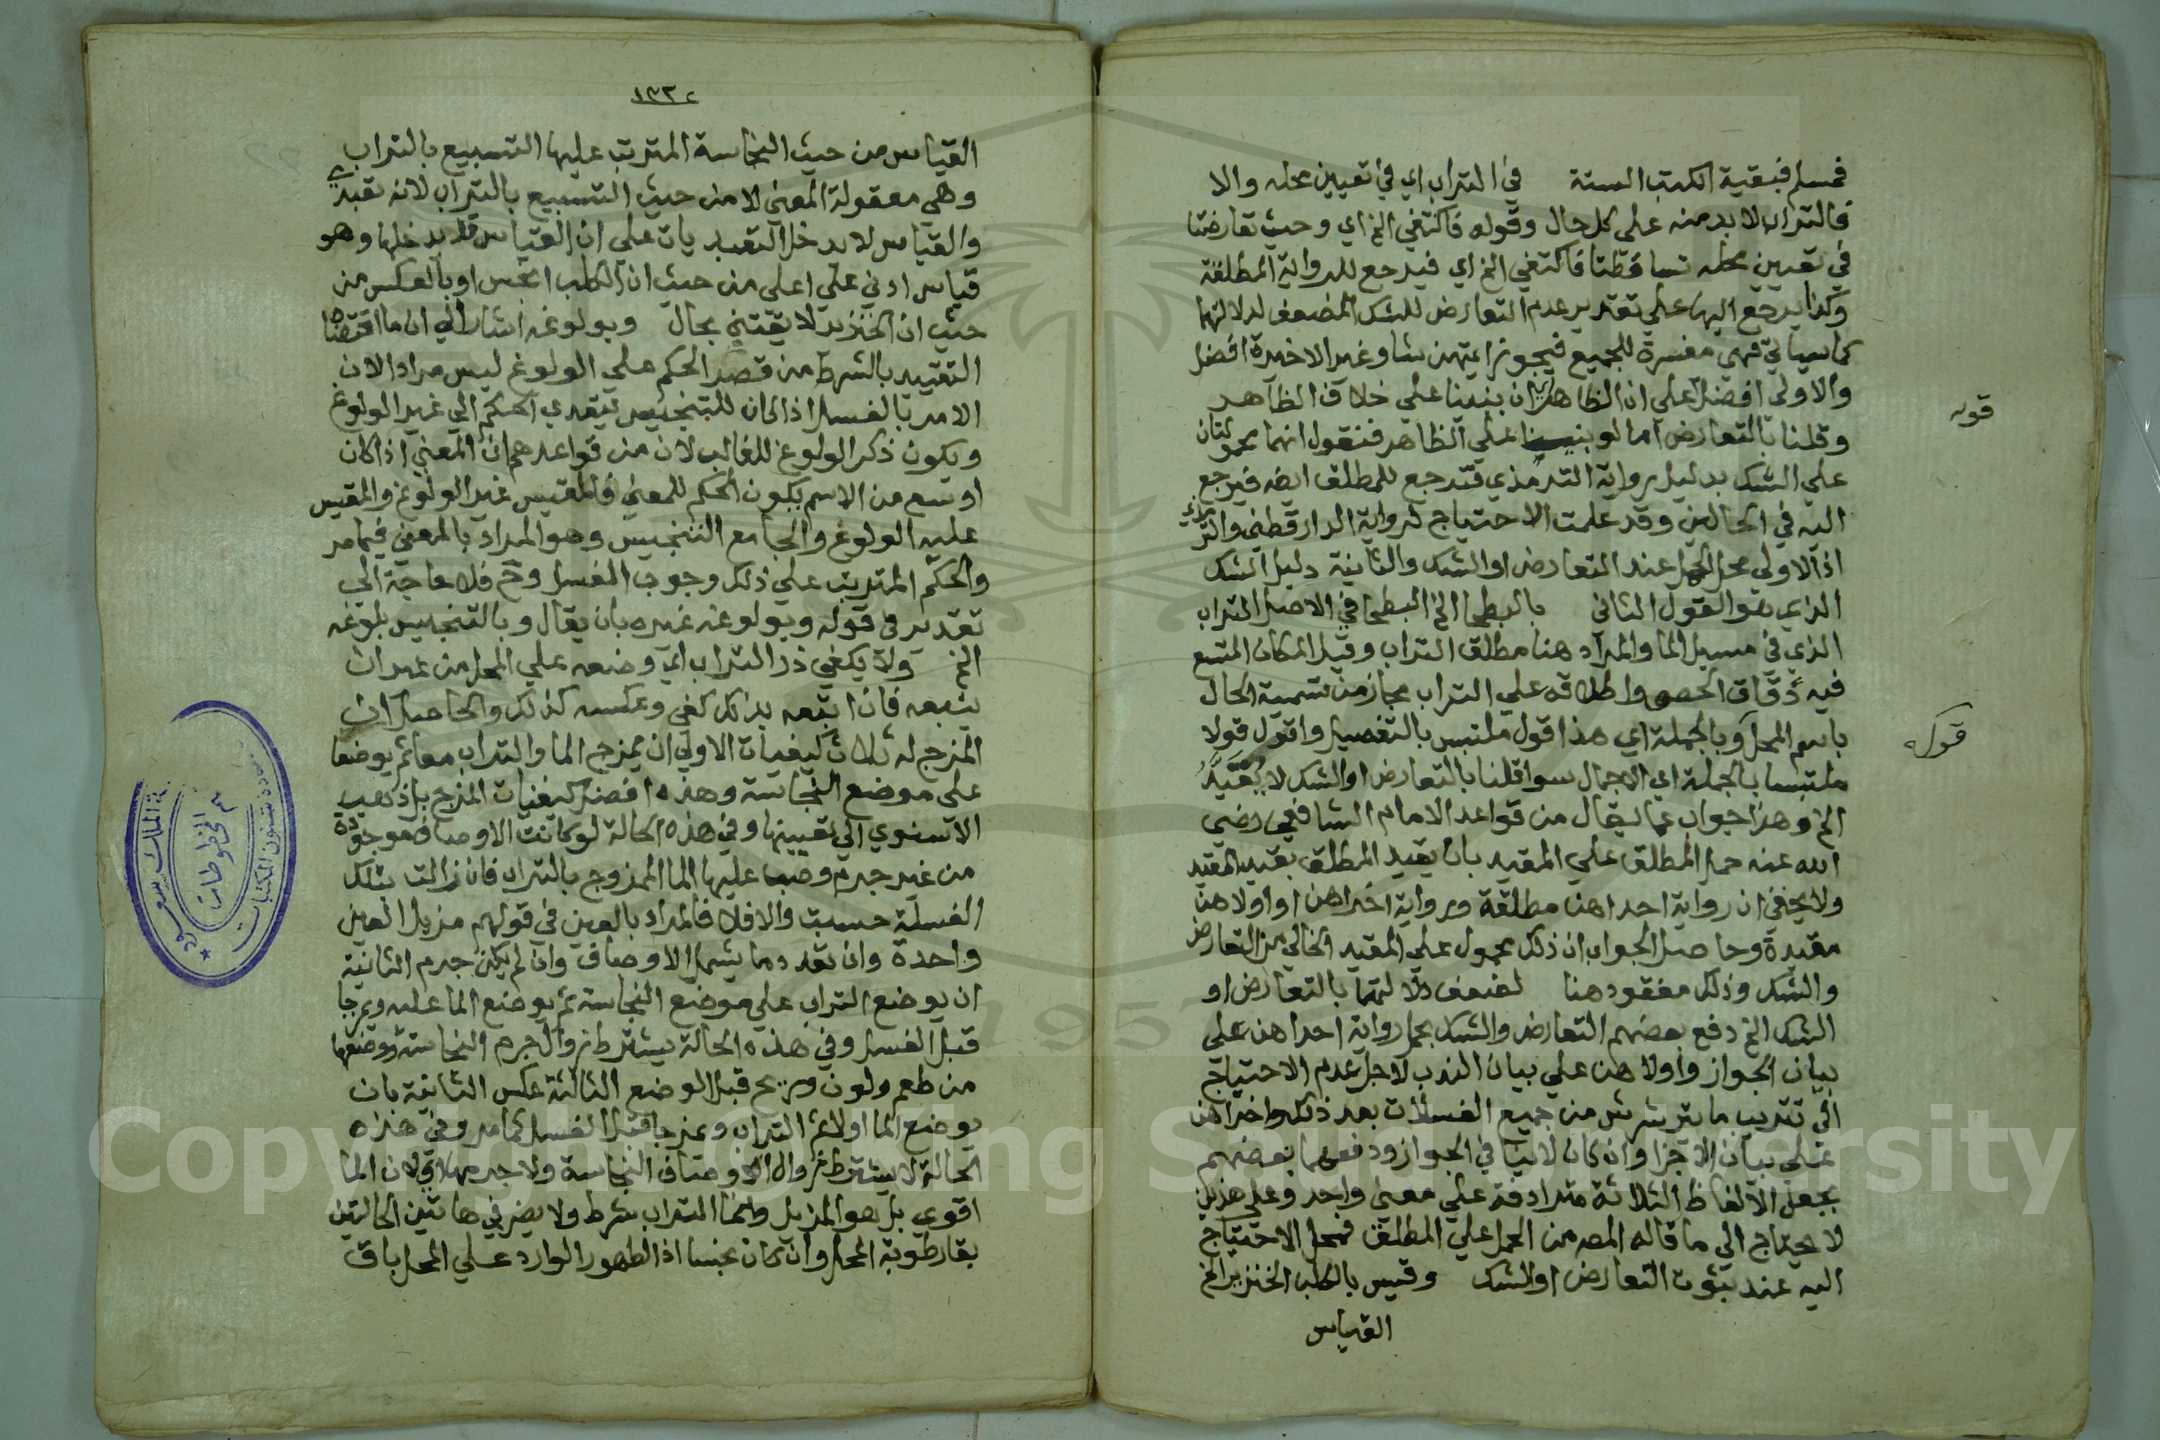 فمسلم فبقية الكتب الستة في التراب اي في تعيين محله والا
فالتراب لا بد منه على كل حال وقوله فاكتفي الخ اي وحيث تعارضتا
في تعيين محله تساقطتا فاكتفي الخ اي فيرجع للرواية المطلقة
وكذا يرجع اليها على تقدير عدم التعارض للشك المضعف لدلالتها
كما سياتي فهي مفسرة للجميع فيجوز ايتهن شا وغير الاخيرة افضل
والاولى افضل على ان الظاهر ان بنينا على خلاف الظاهر
وقلنا بالتعارض اما لو بنينا على الظاهر فنقول انهما محمولتان
على الشك بدليل رواية الترمذي فترجع للمطلق ايضا فيرجع
اليه في الحالين وقد علمت الاحتياج لرواية الدارقطني والترمذي
اذ الاولى محل الحمل عند التعارض او الشك والثانية دليل الشك
الذي هو القول الثاني بالبطحا الخ البطحا في الاصل التراب
الذي في مسيل الما والمراد هنا مطلق التراب وقيل المكان المتسع
فيه دقاق الحصى واطلاقه على التراب مجاز من تسمية الحال
باسم المحل وبالجملة اي هذا اقول ملتبس بالتفصيل واقول قولا
ملتبسا بالجملة اي الاجمال سوا قلنا بالتعارض او الشك لا يقيد
الخ وهذا جواب عما يقال من قواعد الامام الشافعي رضي
الله عنه حمل المطلق على المقيد بان يقيد المطلق بقيد المقيد
ولا يخفي ان رواية احداهن مطلقة ورواية اخراهن او اولاهن
مقيدة وحاصل الجواب ان ذلك محمول على المقيد الخالي من التعارض
والشك وذلك مفقود هنا لضعف دلالتهما بالتعارض او
الشك الخ دفع بعضهم التعارض والشك بحمل رواية احداهن على
بيان الجواز واولاهن على بيان الندب لاجل عدم الاحتياج
الى تتريب ما يترشرش من جميع الغسلات بعد ذلك واخراهن
على بيان الاجزا وان كان لا ينافي الجواز ودفعهما بعضهم
بجعل الالفاظ الثلاثة مترادفة على معنى واحد وعلى هذين
لا يحتاج الى ما قاله المصـ من الحمل على المطلق فمحل الاحتياج
اليه عند ثبوت التعارض او الشك وقيس بالكلب الخنزير الخ
القياس
قوله
قوله
١٣٢
القياس من حيث النجاسة المترتب عليها التسبيع بالتراب
وهي معقولة المعنى لا من حيث التسبيع بالتراب لانه تعبدي
والقياس لا يدخل التعبد يات على ان القياس قد يدخلها وهو
قياس ادني على اعلى من حيث ان الكلب انجس او بالعكس من
حيث ان الخنزير لا يقتنى بحال وبولوغه اشار الى ان ما اقتضاه
التقييد بالشرط من قصر الحكم على الولوغ ليس مراد الان
الامر بالغسل اذا كان للتنجيس يتعدى الحكم الى غير الولوغ
ويكون ذكر الولوغ للغالب لان من قواعدهم ان المعنى اذا كان
اوسع من الاسم يكون الحكم للمعنى فالمقيس غير الولوغ والمقيس
عليه الولوغ والجامع التنجيس وهو المراد بالمعنى فيما مر
والحكم المترتب على ذلك وجوب الغسل وح فلا حاجة الى
تقدير في قوله وبولوغه غيره بان يقال وبالتنجيس بلوغه
الخ ولا يكفي ذر التراب اي وضعه على المحل من غير ان
يتبعه فان اتبعه بذلك كفي وعكسه كذلك والحاصل ان
المزج له ثلاث كيفيات الاولى ان يمزج الما والتراب معا ثم يوضعا
على موضع النجاسة وهذه افضل كيفيات المزج بل ذهب
الاسنوي الى تعيينها وفي هذه الحالة لو كانت الاوصاف موجودة
من غير جرم وصب عليها الما الممزوج بالتراب فان زالت بتلك
الغسلة حسبت والا فلا فالمراد بالعين في قولهم مزيل العين
واحدة وان تعدد ما يشمل الاوصاف وان لم يكن جرم الثانية
ان يوضع التراب على موضع النجاسة ثم يوضع الما عليه ويمزجا
قبل الغسل وفي هذه الحالة يشترط زوال جرم النجاسة ووصفها
من طعم ولون وريح قبل الوضع الثالثة عكس الثانية بان
يوضع الما اولا ثم التراب ويمزجا قبل الغسل كما مر وفي هذه
الحالة لا يشترط زوال الاوصاف النجاسة ولا جرمها لان الما
اقوى بل هو المزيل وانما التراب شرط ولا يضر في هاتين الحالتين
بقا رطوبة المحل وان كان نجسا اذ الطهور الوارد على المحل باق
المخطوطات
Copyright © King Saud University
1957